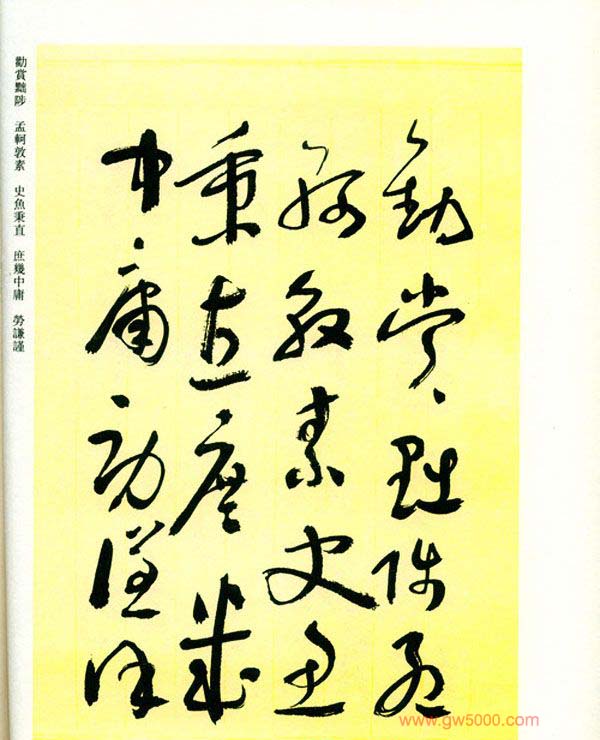 勸賞黜陟孟
軻敦素史魚
秉直庶幾
中庸勞謙謹
勸賞黜陟 孟軻敦素 史魚秉直 庶幾中庸 勞謙謹
www.gw5000.com